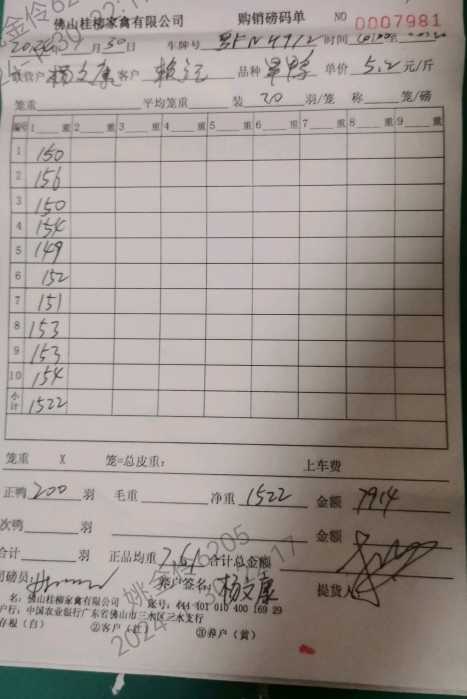 佛山桂柳家禽有限公司 购销磅码单 NO 0007981
2024年 月30日 车牌号 时间
养户 杨文康 客户 品种 单价 5.2 元/斤
笼重 平均笼重 装 20 羽/笼 称 笼/磅
编号 1 重 2 重 3 重 4 重 5 重 6 重 7 重 8 重 9 重
1 150
2 156
3 150
4 154
5 149
6 152
7 151
8 153
9 153
10 154
小计 1522
笼重 X 笼=总皮重: 上车费
正鸭 200 羽 毛重 净重 1522 金额 7914
次鸭 羽 金额
合计 羽 正品均重 7.61 合计总金额
司磅员: 养户签名: 杨文康 提货人
名: 佛山桂柳家禽有限公司 账号: 444 401 010 400 169 29
户行: 中国农业银行广东省佛山市三水区三水支行
存根(白) ②客户(红) ③养户(黄)